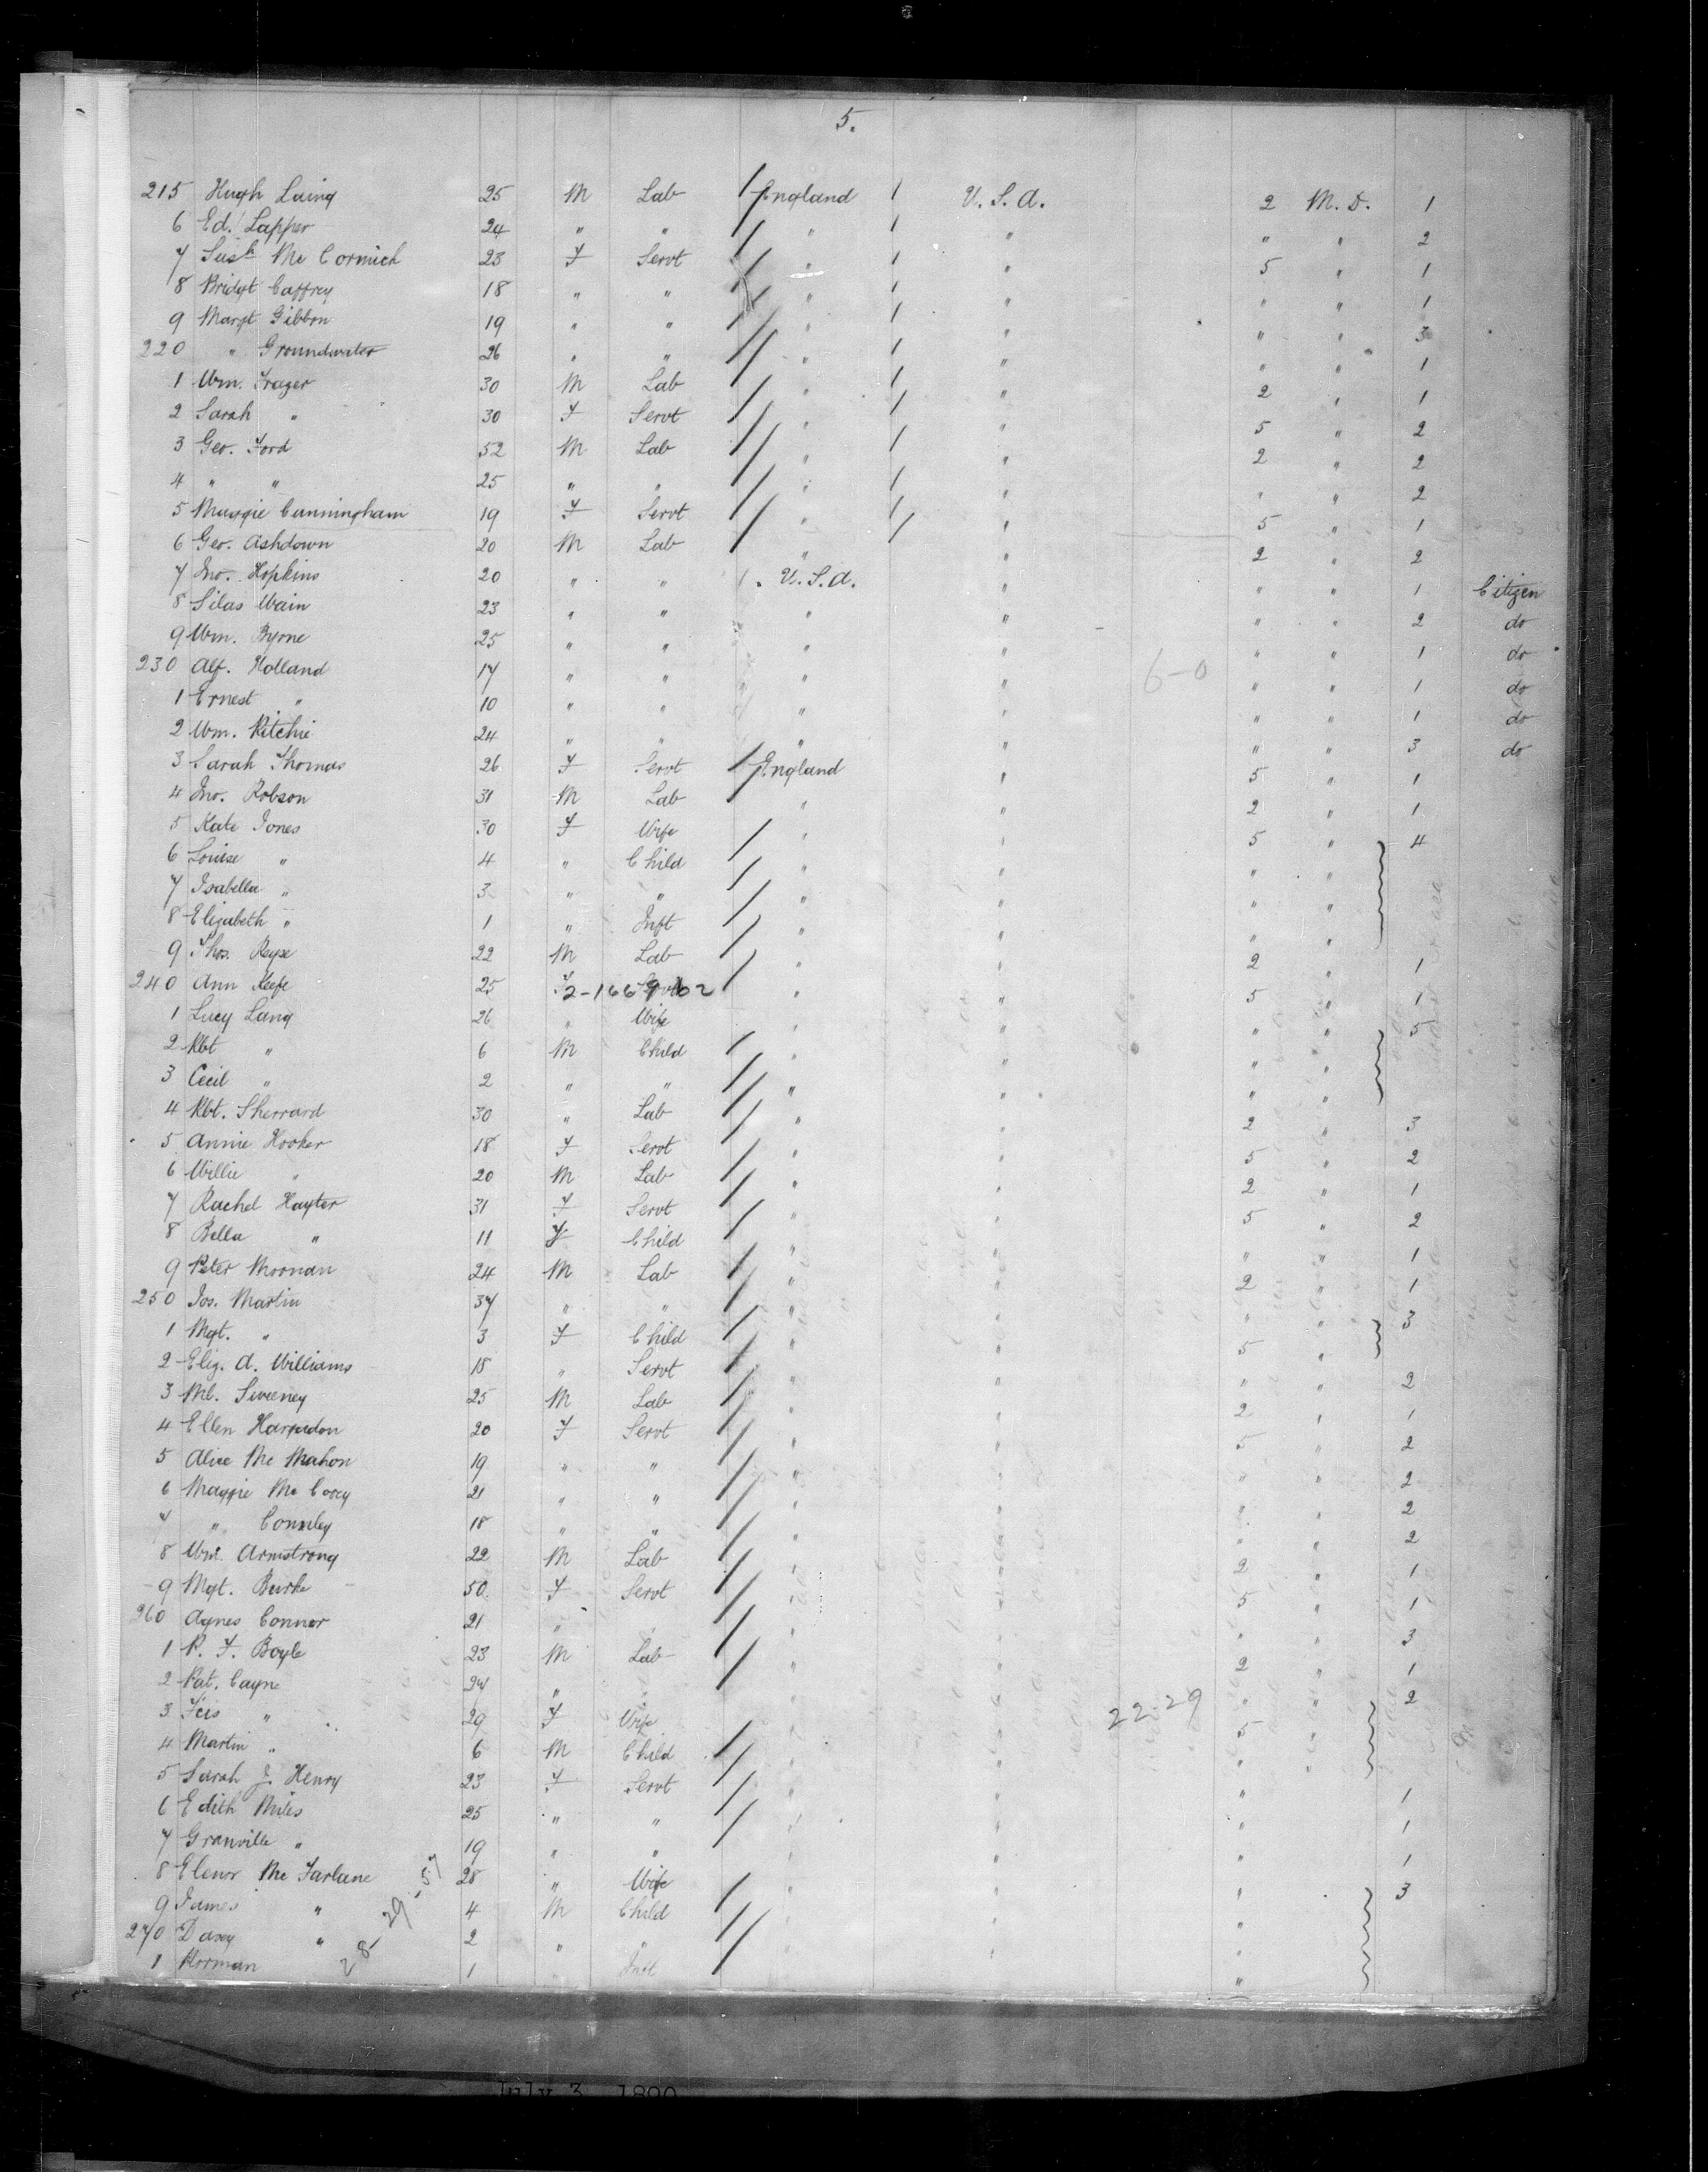 5.
215 Hugh Laing 25 M Lab England 1 U.S.A. 2 M.D. 1
6 Ed. Lapper 24 " " " 1 " " " 2
7 Sush Mc Cormick 23 F Servt " 1 " 5 " 1
8 Bridgt Caffrey 18 " " " 1 " " " 1
9 Margt Gibbon 19 " " " 1 " " " 3
220 " Groundwater 26 " " " 1 " " " 1
1 Wm. Frazer 30 M Lab " 1 " 2 " 1
2 Sarah " 30 F Servt " 1 " 5 " 2
3 Geo. Ford 52 M Lab " 1 " 2 " 2
4 " " 25 " " " 1 " " " 2
5 Maggie Cunningham 19 F Servt " 1 " 5 " 1
6 Geo. Ashdown 20 M Lab " 1 " 2 " 2
7 Jno. Hopkins 20 " " U.S.A. " " " 1 Citizen
8 Silas Wain 23 " " " " " " 2 do
9 Wm. Byrne 25 " " " " " " 1 do
230 Alf. Holland 17 " " " " 6-0 " " 1 do
1 Ernest " 10 " " " " " " 1 do
2 Wm. Ritchie 24 " " " " " " 3 do
3 Sarah Thomas 26 F Servt England " 5 " 1
4 Jno. Robson 31 M Lab " " 2 " 1
5 Kate Jones 30 F Wife " " 5 " 4
6 Louise " 4 " Child " " " "
7 Isabella " 3 " " " " " "
8 Elizabeth " 1 " Inft " " " "
9 Thos. 22 M Lab " " 2 " 1
240 Ann Keefe 25 F 2-166962 " " 5 " 1
1 Lucy Lang 26 " Wife " " " " 5
2 Rbt " 6 M Child " " " "
3 Cecil " 2 " " " " " "
4 Rbt. Sherrard 30 " Lab " " 2 " 3
5 Annie Hooker 18 F Servt " " 5 " 2
6 Willie " 20 M Lab " " 2 " 1
7 Rachel Hayter 31 F Servt " " 5 " 2
8 Bella " 11 F Child " " " " 1
9 Peter Moonan 24 M Lab " " 2 " 1
250 Jos. Martin 37 " " " " " " 3
1 Mgt. " 3 F Child " " 5 "
2 Eliz. A. Williams 18 " Servt " " " " 2
3 Ml. Sweeney 25 M Lab " " 2 " 1
4 Ellen 20 F Servt " " 5 " 2
5 Alice Mc Mahon 19 " " " " " " 2
6 Maggie Mc 21 " " " " " " 2
7 " Connley 18 " " " " " " 2
8 Wm. Armstrong 22 M Lab " " 2 " 1
9 Mgt. Burke 50 F Servt " " 5 " 1
260 Agnes Connor 21 " " " " " " 3
1 P. F. Boyle 23 M Lab " " 2 " 1
2 Pat. Cayne 24 " " " " " " 2
3 " 29 F Wife " " 22-29 5 "
4 Martin " 6 M Child " " " "
5 Sarah J. Henry 23 F Servt " " " 1
6 Edith Miles 25 " " " " " 1
7 Granville " 19 " " " " " 1
8 Elenor Mc Farlane 28 " Wife " " " 3
9 James " 4 M Child " " "
270 Davy " 2 " " " " "
1 Norman 1 Inft "
28-29-57
July 3, 1890